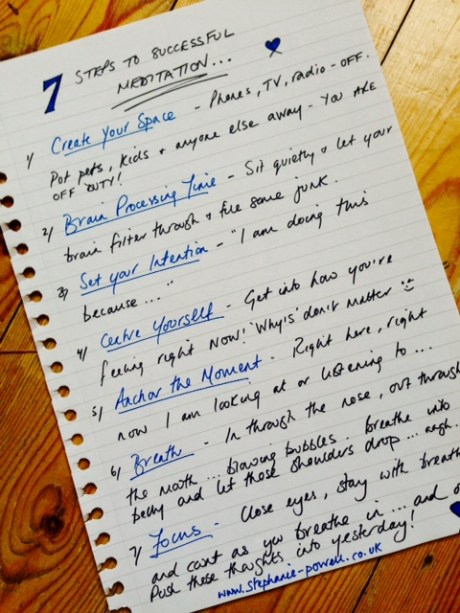 7 STEPS TO SUCCESSFUL
MEDITATION...
1) Create Your Space - Phones, TV, radio - OFF.
Put pets, kids + anyone else away - YOU ARE
OFF DUTY!
2) Brain Processing Time - Sit quietly + let your
brain filter through + file some junk.
3) Set your Intention - "I am doing this
because...."
4) Centre Yourself - Get into how you're
feeling right NOW! 'Why's' don't matter
5) Anchor the Moment - Right here, right
now I am looking at or listening to...
6) Breath - In through the nose, out through
the mouth... blowing bubbles. breathe into
belly and let those shoulders drop... aagh..
7) Focus - Close eyes, stay with breath
and count as you breathe in... and o
Push these thoughts into yesterday!
www.stephanie-powell.co.uk